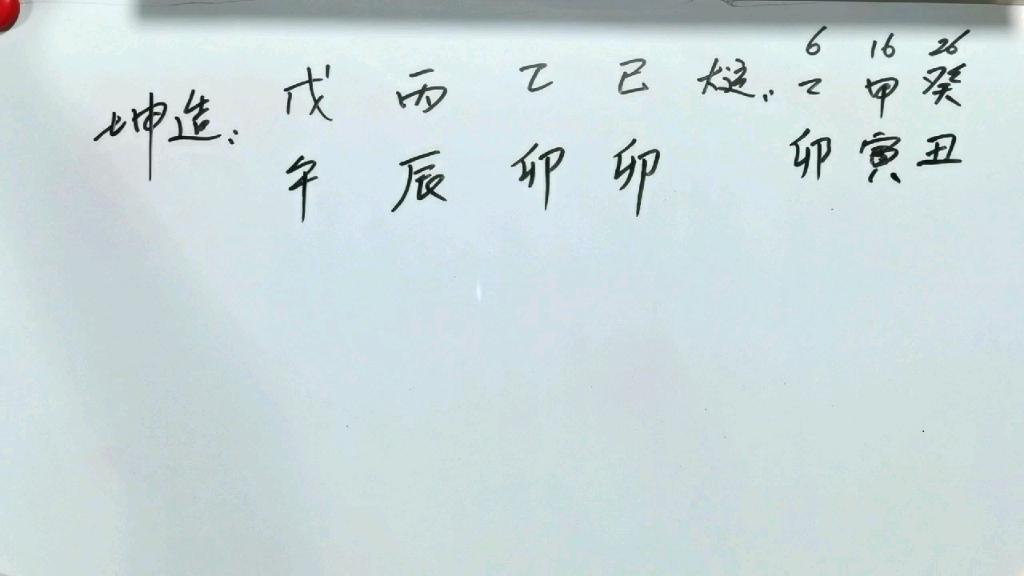 6 16 26
坤造: 戊 丙 乙 己 大运: 乙 甲 癸
午 辰 卯 卯 卯 寅 丑